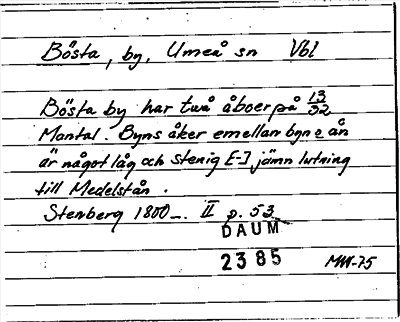 Bösta, by, Umeå sn Vbl
Bösta by har två åboer på 13/32
Mantal. Byns åker emellan byn o ån
är något låg och stenig [-] jämn lutning
till Medelstån.
Stenberg 1800-. II p. 53
DAUM
2385 MM-75